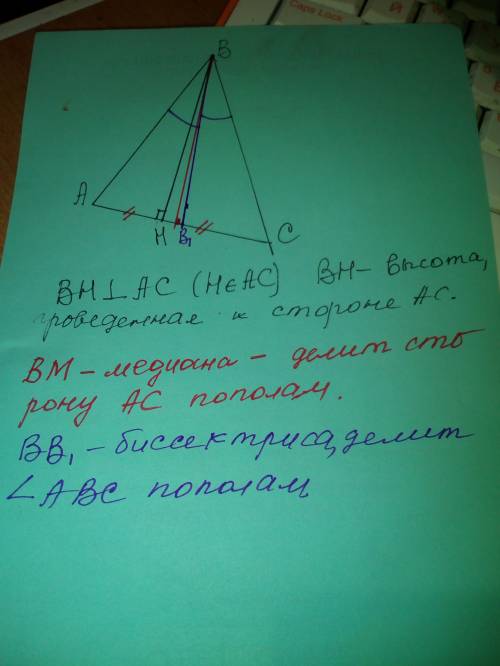 Caps Lock
B
A
H
B₁
C
BH⊥AC (H∈AC) BH - высота,
проведенная к стороне AC.
BM - медиана - делит сто
рону AC пополам.
BB₁ - биссектриса, делит
∠ABC пополам